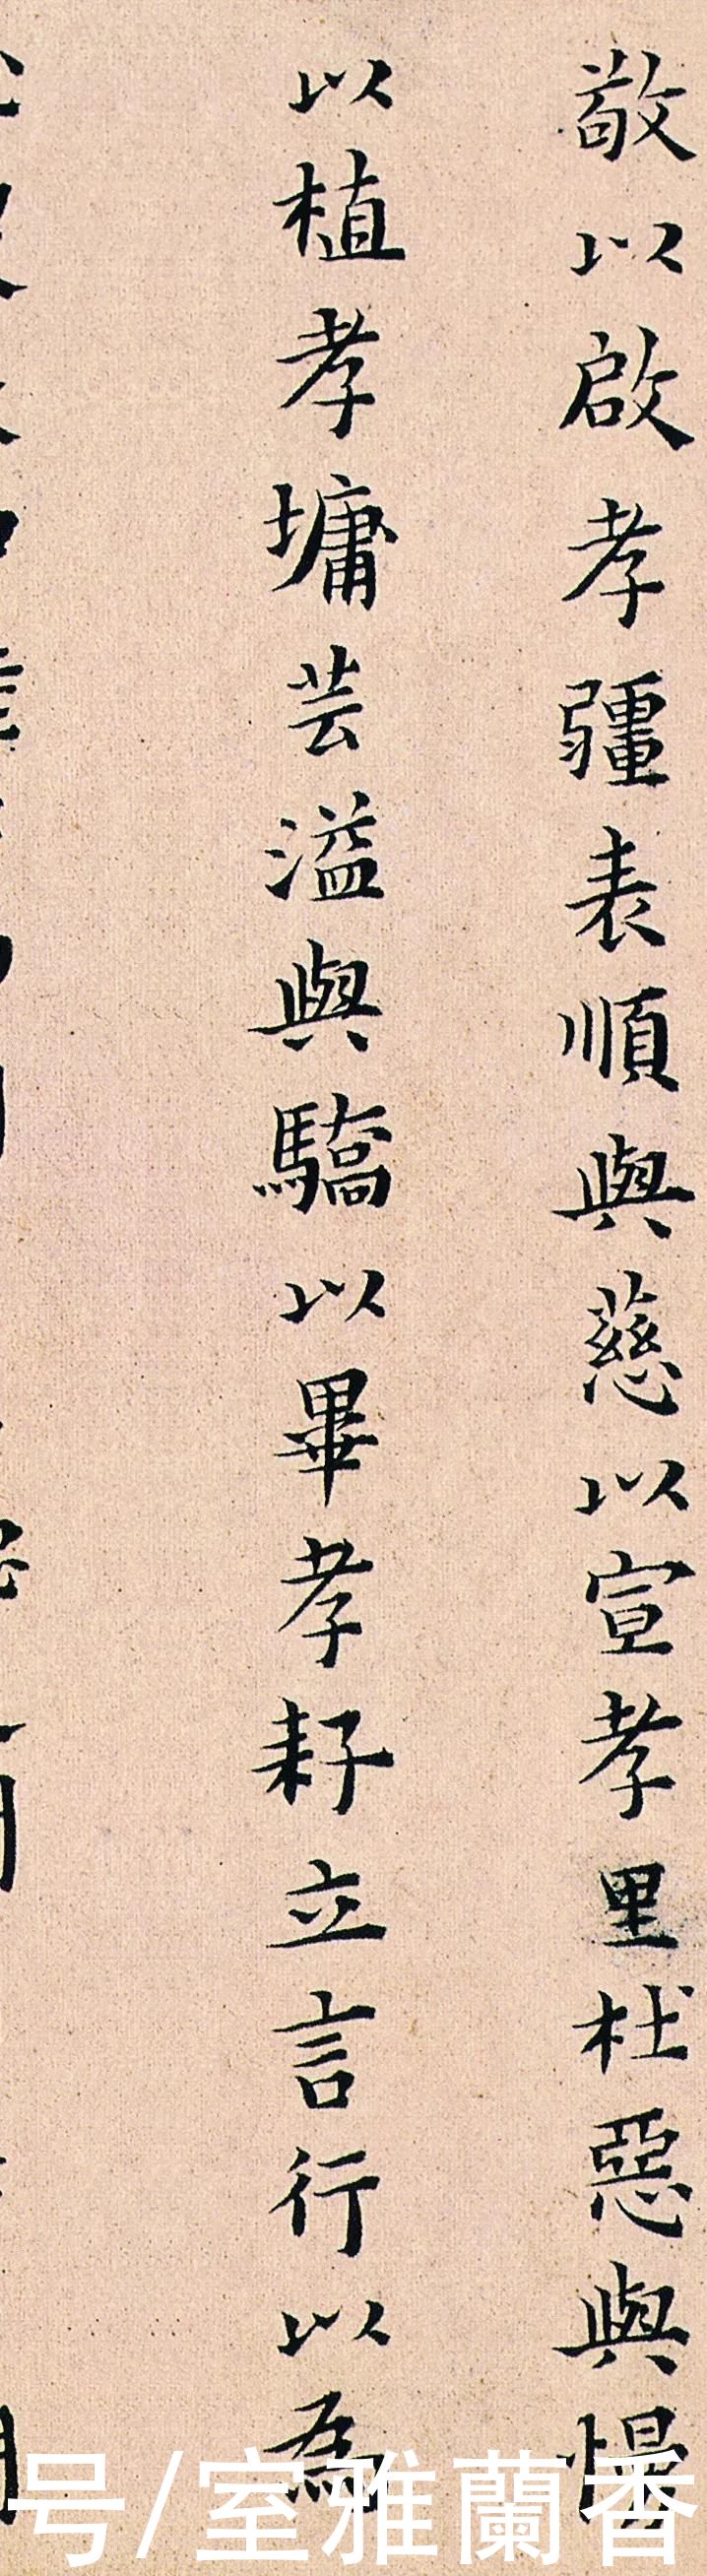 敬以啟孝疆表順與慈以宣孝里杜惡與慢
以植孝墉芸溢與驕以畢孝耔立言行以為
号/室雅蘭香